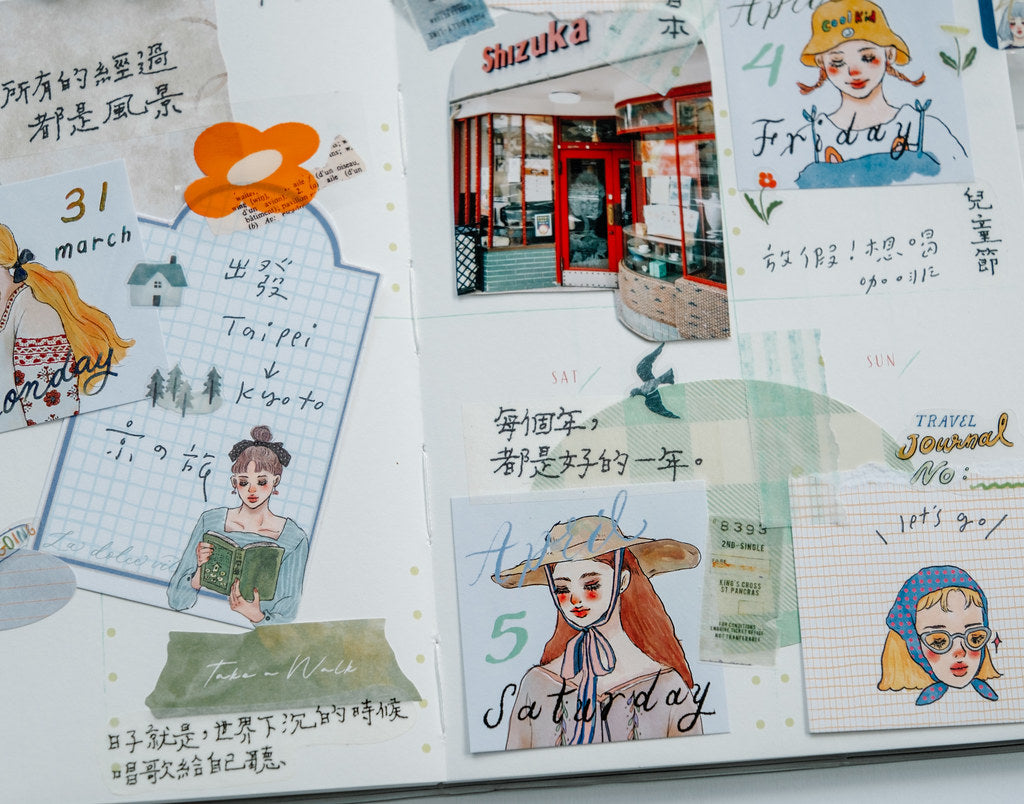 所有的經過
都是風景
31
march
onday
出發
Taipei
↓
Kyoto
京の旅
La dolce vi
GOING
Take a Walk
日子就是，世界下沉的時候
唱歌給自己聽。
本
Shizuka
April
4
Cool Kid
Friday
兒童節
放假！想喝
咖啡
SAT/
SUN/
每個年，
都是好的一年。
April
5
Saturday
8393
2ND-SINGLE
KING'S CROSS
ST PANCRAS
FOR CONDITIONS
NOT TRANSFERABLE
TRAVEL
Journal
No:
\ let's go /